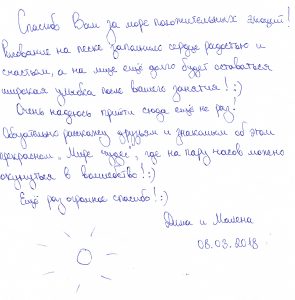 Спасибо Вам за море положительных эмоций!
Рисование на песке заполнило сердце радостью и
счастьем, а на лице ещё долго будет оставаться
широкая улыбка после вашего занятия! :)
Очень надеюсь прийти сюда ещё не раз!
Обязательно расскажу друзьям и знакомым об этом
прекрасном "Мире чудес", где на пару часов можно
окунуться в волшебство! :)
Ещё раз огромное спасибо! :)
Дима и Милена
08.03.2018